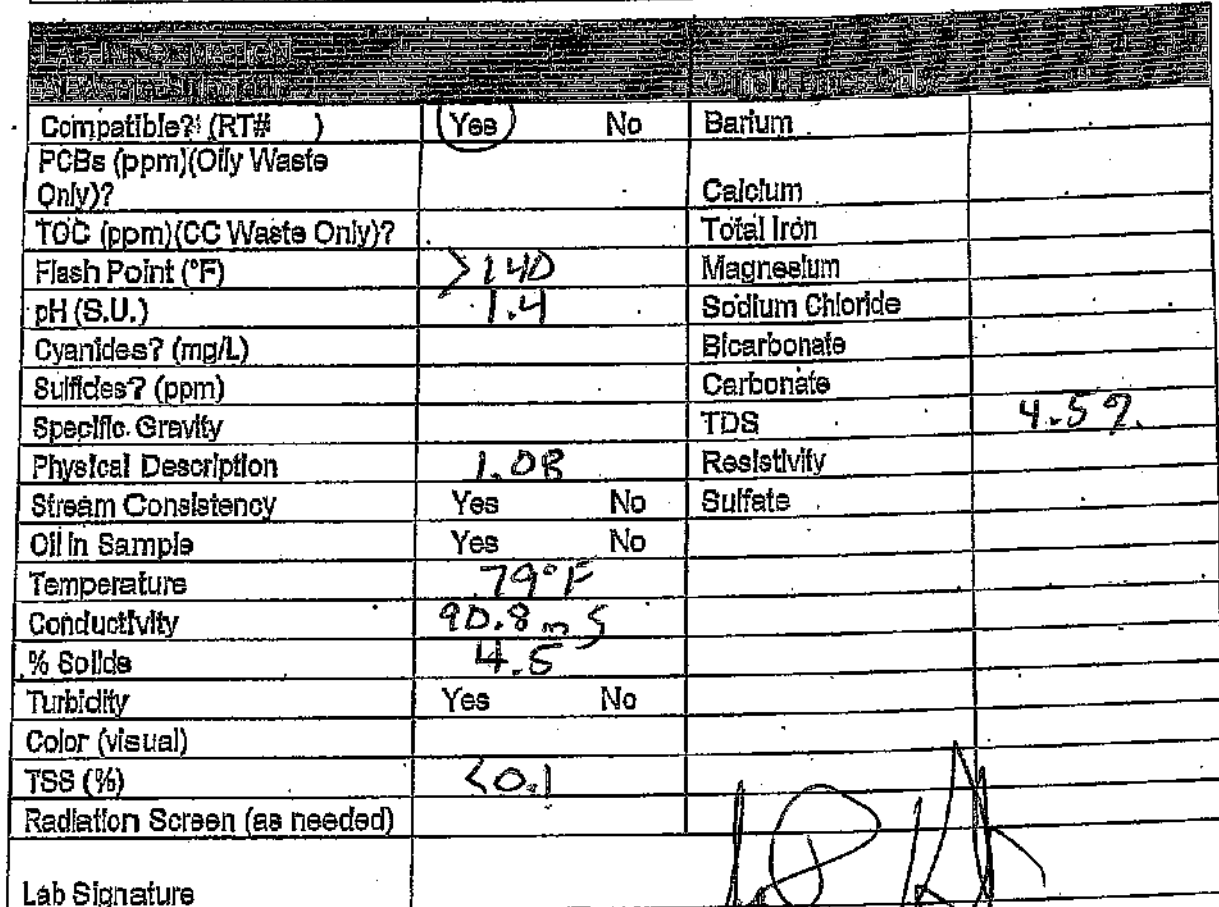 LAB INFORMATION
Compatible? (RT# ) Yes No Barium
PCBs (ppm)(Oily Waste
Only)? Calcium
TOC (ppm)(CC Waste Only)? Total Iron
Flash Point (°F) >140 Magnesium
pH (S.U.) 1.4 Sodium Chloride
Cyanides? (mg/L) Bicarbonate
Sulfides? (ppm) Carbonate
Specific Gravity TDS 4.5%
Physical Description 1.08 Resistivity
Stream Consistency Yes No Sulfate
Oil in Sample Yes No
Temperature 79°F
Conductivity 90.8 mS
% Solids 4.5
Turbidity Yes No
Color (visual)
TSS (%) <0.1
Radiation Screen (as needed)
Lab Signature